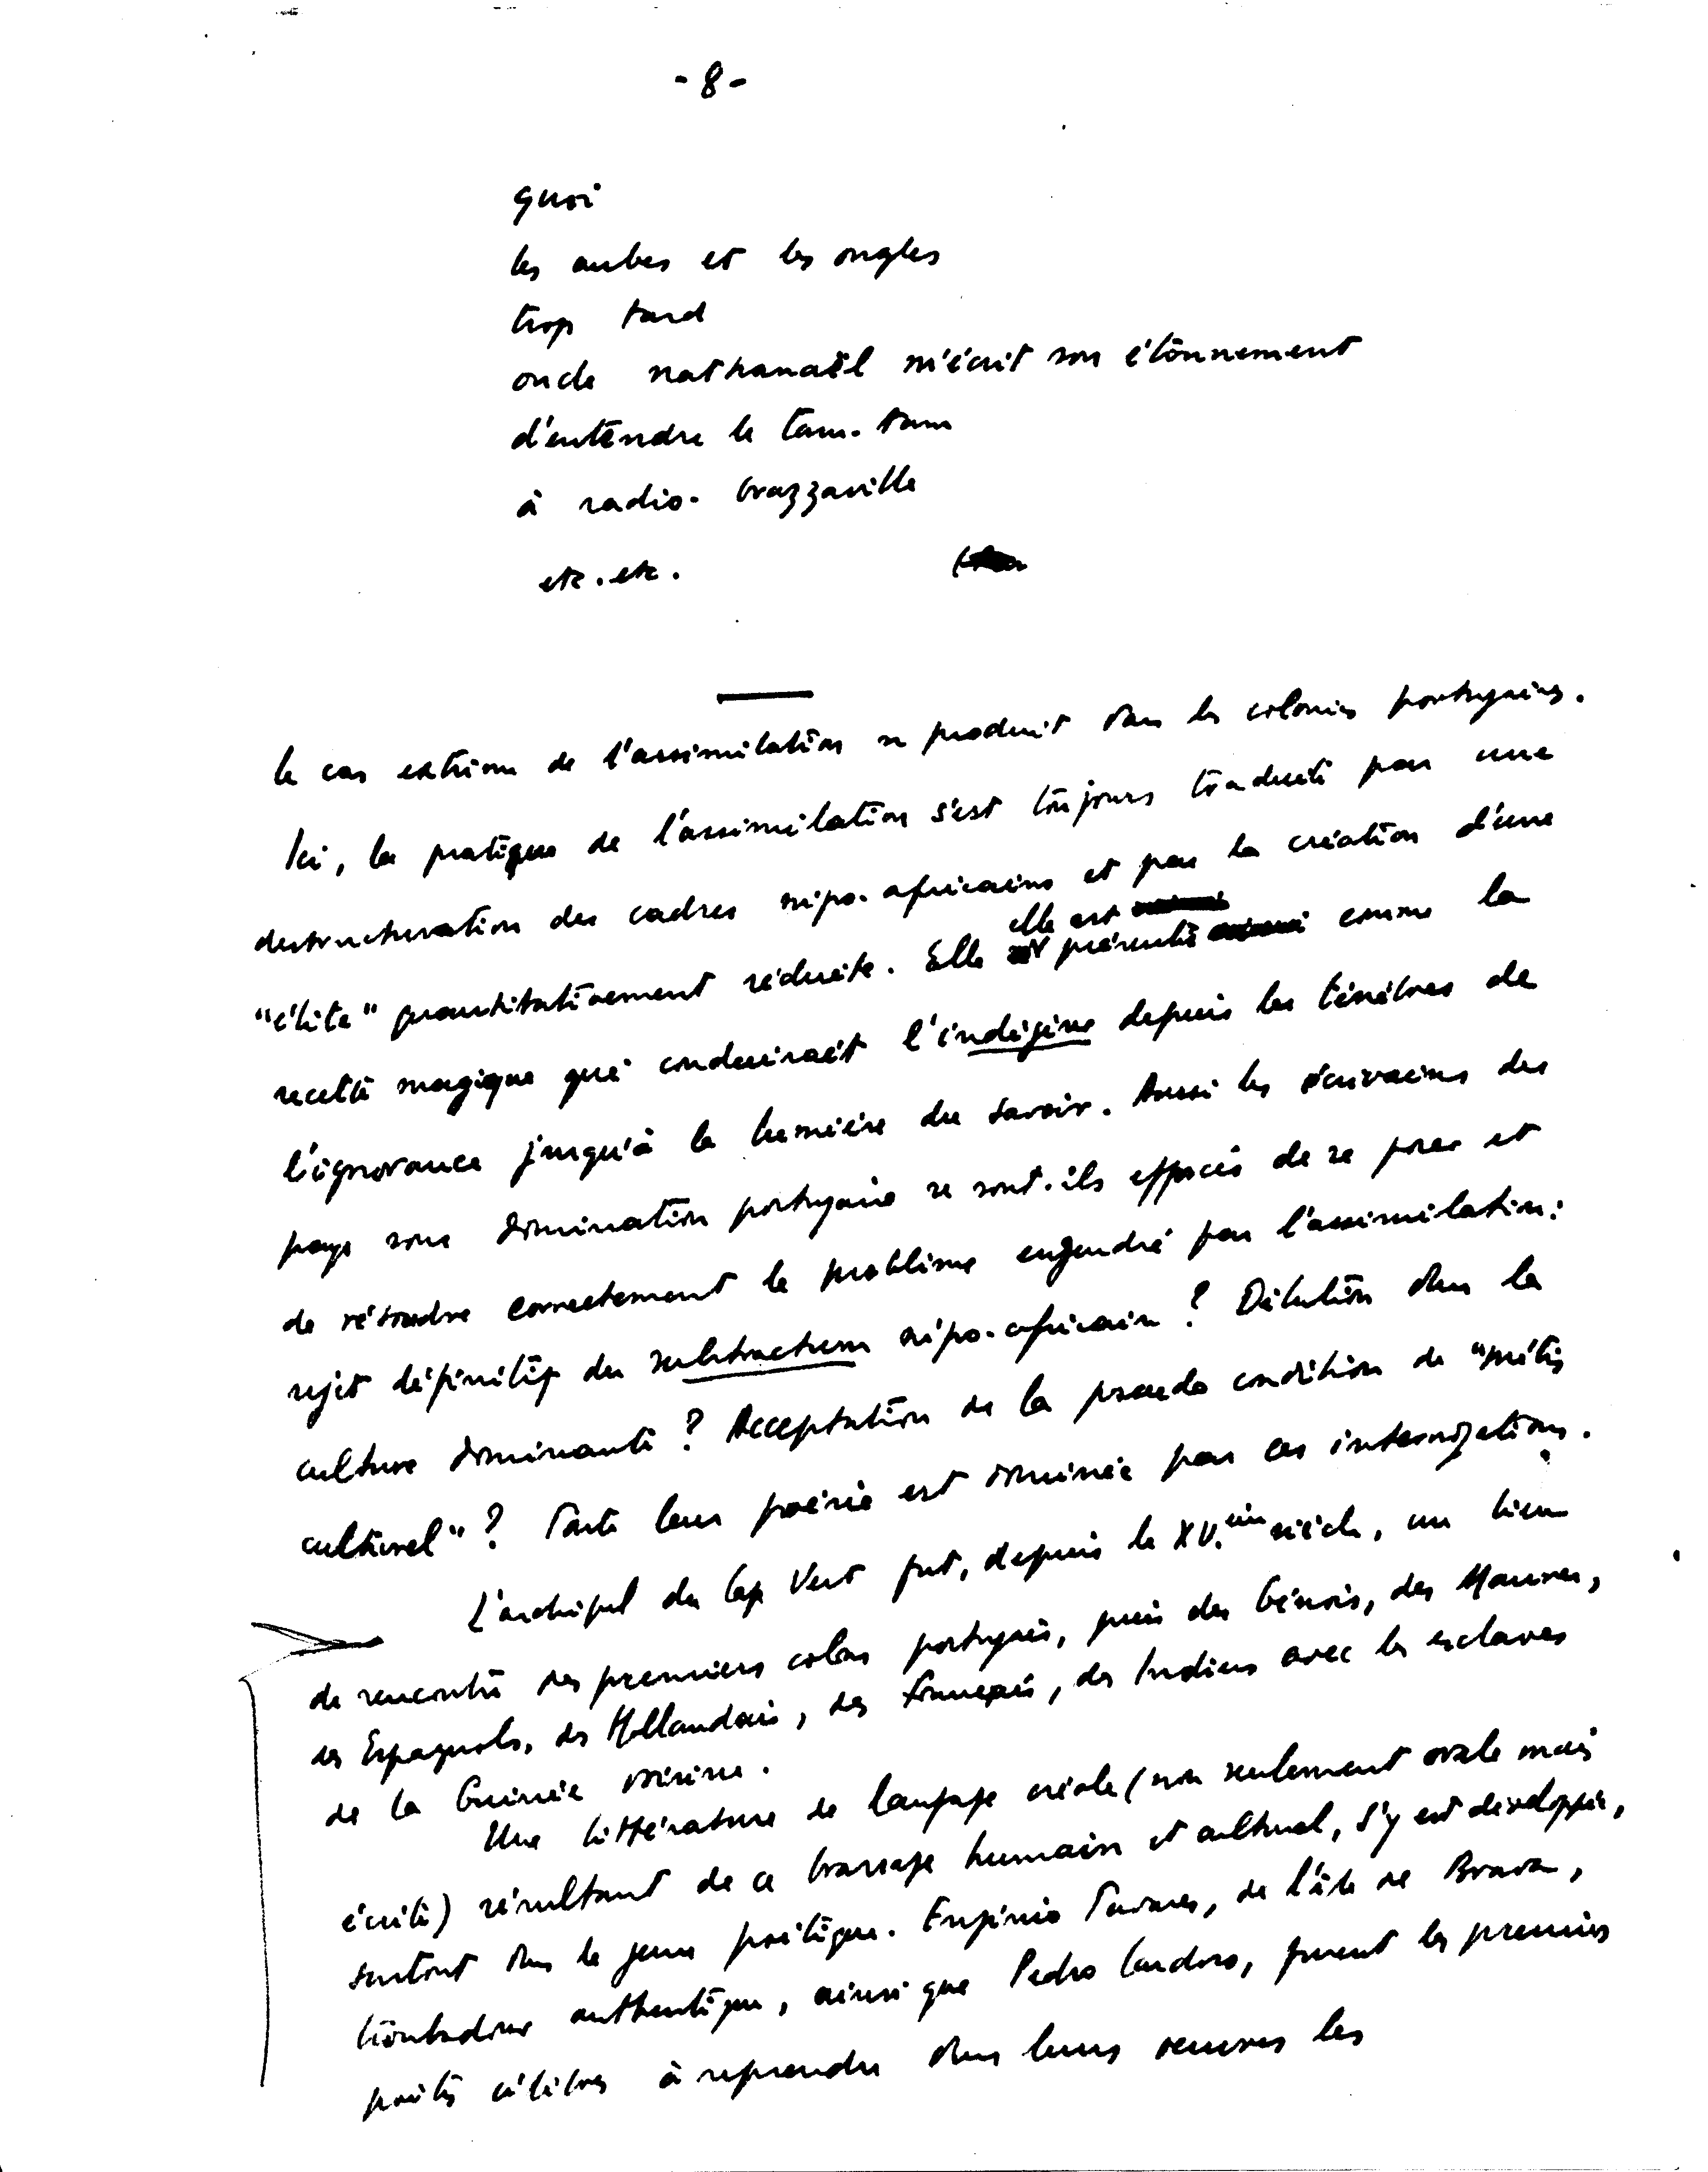 - 8 -
quoi
les aubes et les ongles
trop tard
oncle nathanaël m'écrit son étonnement
d'entendre le tam-tam
à radio-brazzaville
etc. etc.
Le cas extrême de l'assimilation se produit dans les colonies portugaises.
Ici, la pratique de l'assimilation s'est toujours traduite par une
destructuration des cadres négro-africains et par la création d'une
"élite" quantitativement réduite. Elle elle est présentée comme la
recette magique qui conduirait l'indigène depuis les ténèbres de
l'ignorance jusqu'à la lumière du savoir. Aussi les écrivains des
pays sous domination portugaise se sont-ils efforcés de se poser et
de résoudre correctement le problème engendré par l'assimilation:
rejet définitif du substractum négro-africain ? Dilution dans la
culture dominante ? Acceptation de la pseudo condition de "métis
culturel" ? Toute leur poésie est dominée par ces interrogations.
L'archipel du Cap Vert fut, depuis le XV.ème siècle, un lieu
de rencontre des premiers colons portugais, puis des Génois, des Maures,
des Espagnols, des Hollandais, des Français, des Indiens avec les esclaves
de la Guinée voisine.
Une littérature de langage créole (non seulement orale mais
écrite) résultant de ce brassage humain et culturel, s'y est développée,
surtout dans le genre poétique. Eugénio Tavares, de l'île de Brava,
troubadour authentique, ainsi que Pedro Cardoso, furent les premiers
poètes célèbres à reprendre dans leurs oeuvres les